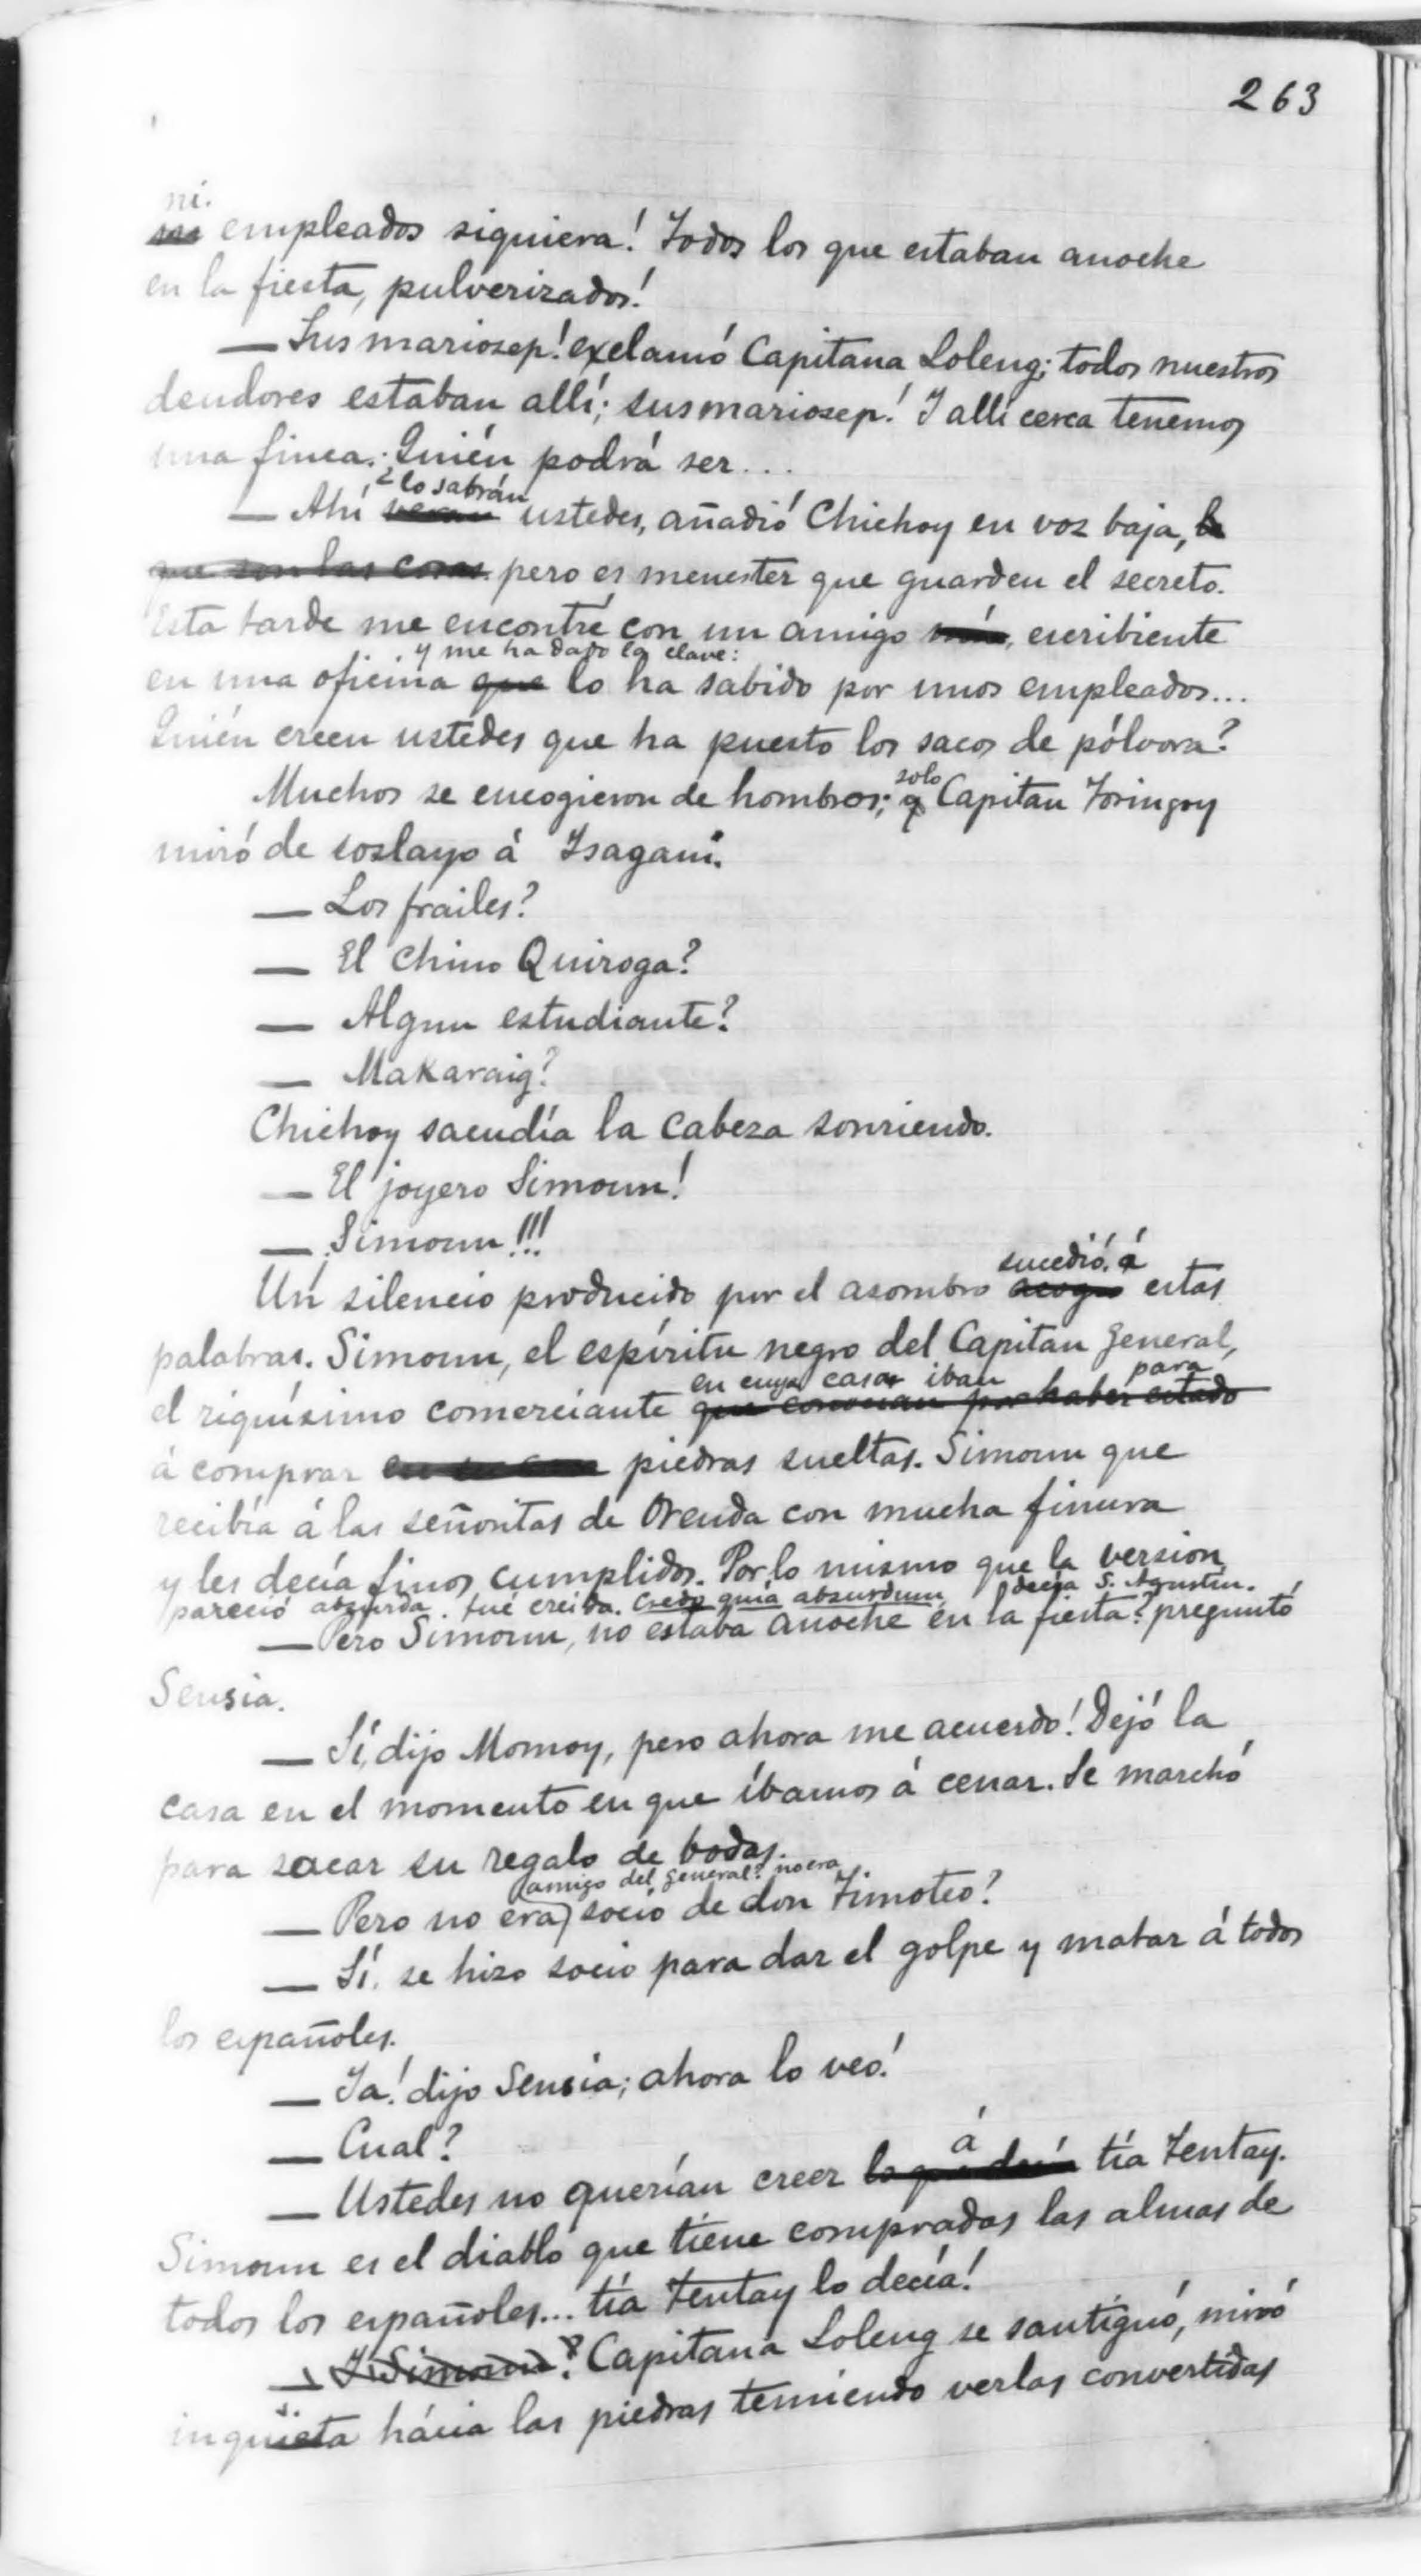 263
ni.
empleados siquiera! Todos los que estaban anoche
en la fiesta, pulverizados!
— Susmariosep! exclamó Capitana Loleng; todos nuestros
deudores estaban allí; susmariosep! Y allí cerca tenemos
una finca. ¿Quién podrá ser...
lo sabrán
— Ahí veran ustedes, añadió Chichoy en voz baja, lo
que son las cosas. pero es menester que guarden el secreto.
Esta tarde me encontré con un amigo mío, escribiente
y me ha dado la clave:
en una oficina que lo ha sabido por unos empleados...
Quién creen ustedes que ha puesto los sacos de pólvora?
solo
Muchos se encogieron de hombros; y Capitan Toringoy
miró de soslayo á Isagani.
— Los frailes?
— El chino Quiroga?
— Algun estudiante?
— Makaraig?
Chichoy sacudía la cabeza sonriendo.
— El joyero Simoun!
— Simoun!!!
sucedió á
Un silencio producido por el asombro acogió estas
palabras. Simoun, el espíritu negro del Capitan General,
en cuya casa iban para
el riquísimo comerciante que conocian por haber estado
á comprar en su casa piedras sueltas. Simoun que
recibía á las señoritas de Orenda con mucha finura
y les decía finos cumplidos. Por lo mismo que la version
pareció absurda, fué creida. Credo quia absurdum, decía S. Agustin.
— Pero Simoun, no estaba anoche en la fiesta? preguntó
Sensia.
— Sí, dijo Momoy, pero ahora me acuerdo! Dejó la
casa en el momento en que íbamos á cenar. Se marchó
para sacar su regalo de bodas.
amigo del General? no era
— Pero no era socio de don Timoteo?
— Sí. se hizo socio para dar el golpe y matar á todos
los españoles.
— Ya! dijo Sensia; ahora lo veo!
— Cual?
á
— Ustedes no querían creer lo que decía tía Tentay.
Simoun es el diablo que tiene compradas las almas de
todos los españoles... tía Tentay lo decía!
— Y Simoun? Capitana Loleng se santiguó, miró
inquieta hácia las piedras temiendo verlas convertidas